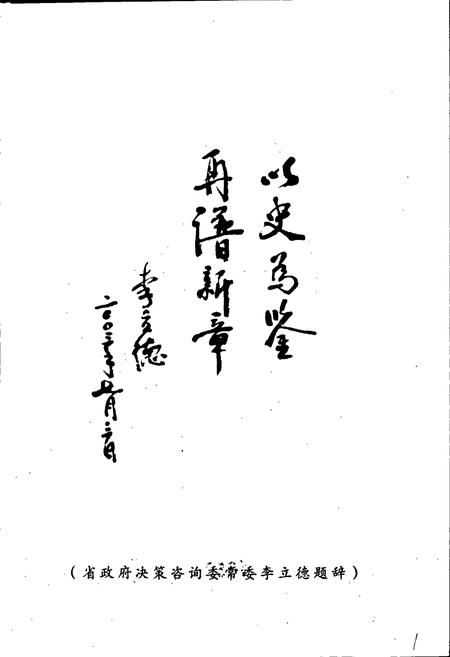 以史为鉴
再谱新章
李立德
二〇〇三年
月三日
（省政府决策咨询委常委李立德题辞）
1